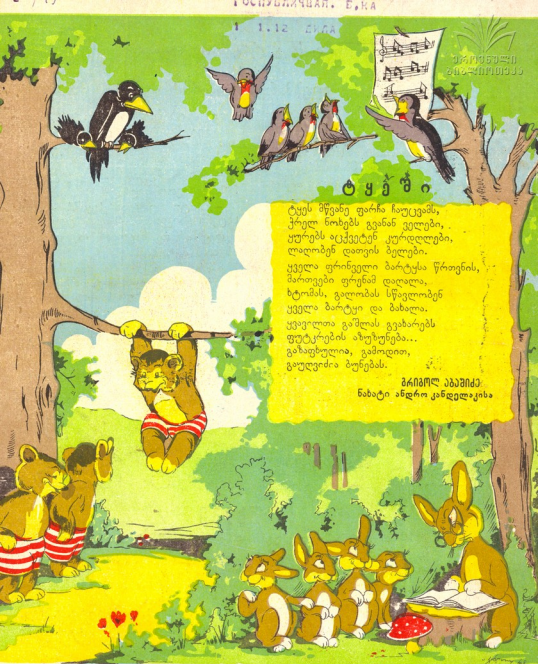 РЕСПУБЛИЧАН. Б.КА
1 1.12
ეროვნული
ბიბლიოთეკა
ტყეში
ტყეს მწვანე ფარჩა ჩაუცვამს,
ჭრელ ნოხებს გვანან ველები,
ყურებს აცქვეტენ კურდღლები,
ლაღობენ დათვის ბელები.
ყველა ფრინველი ბარტყსა წრთვნის,
მართვები ფრენამ დაღალა,
ხტომას, გალობას სწავლობენ
ყველა ბარტყი და ბახალა.
ყვავილთა გაშლას გვახარებს
ფუტკრების აზუზუნება...
გაზაფხულია, გამოდით,
გაუღვიძია ბუნებას.
გრიგოლ აბაშიძე
ნახატი ანდრო კანდელაკისა